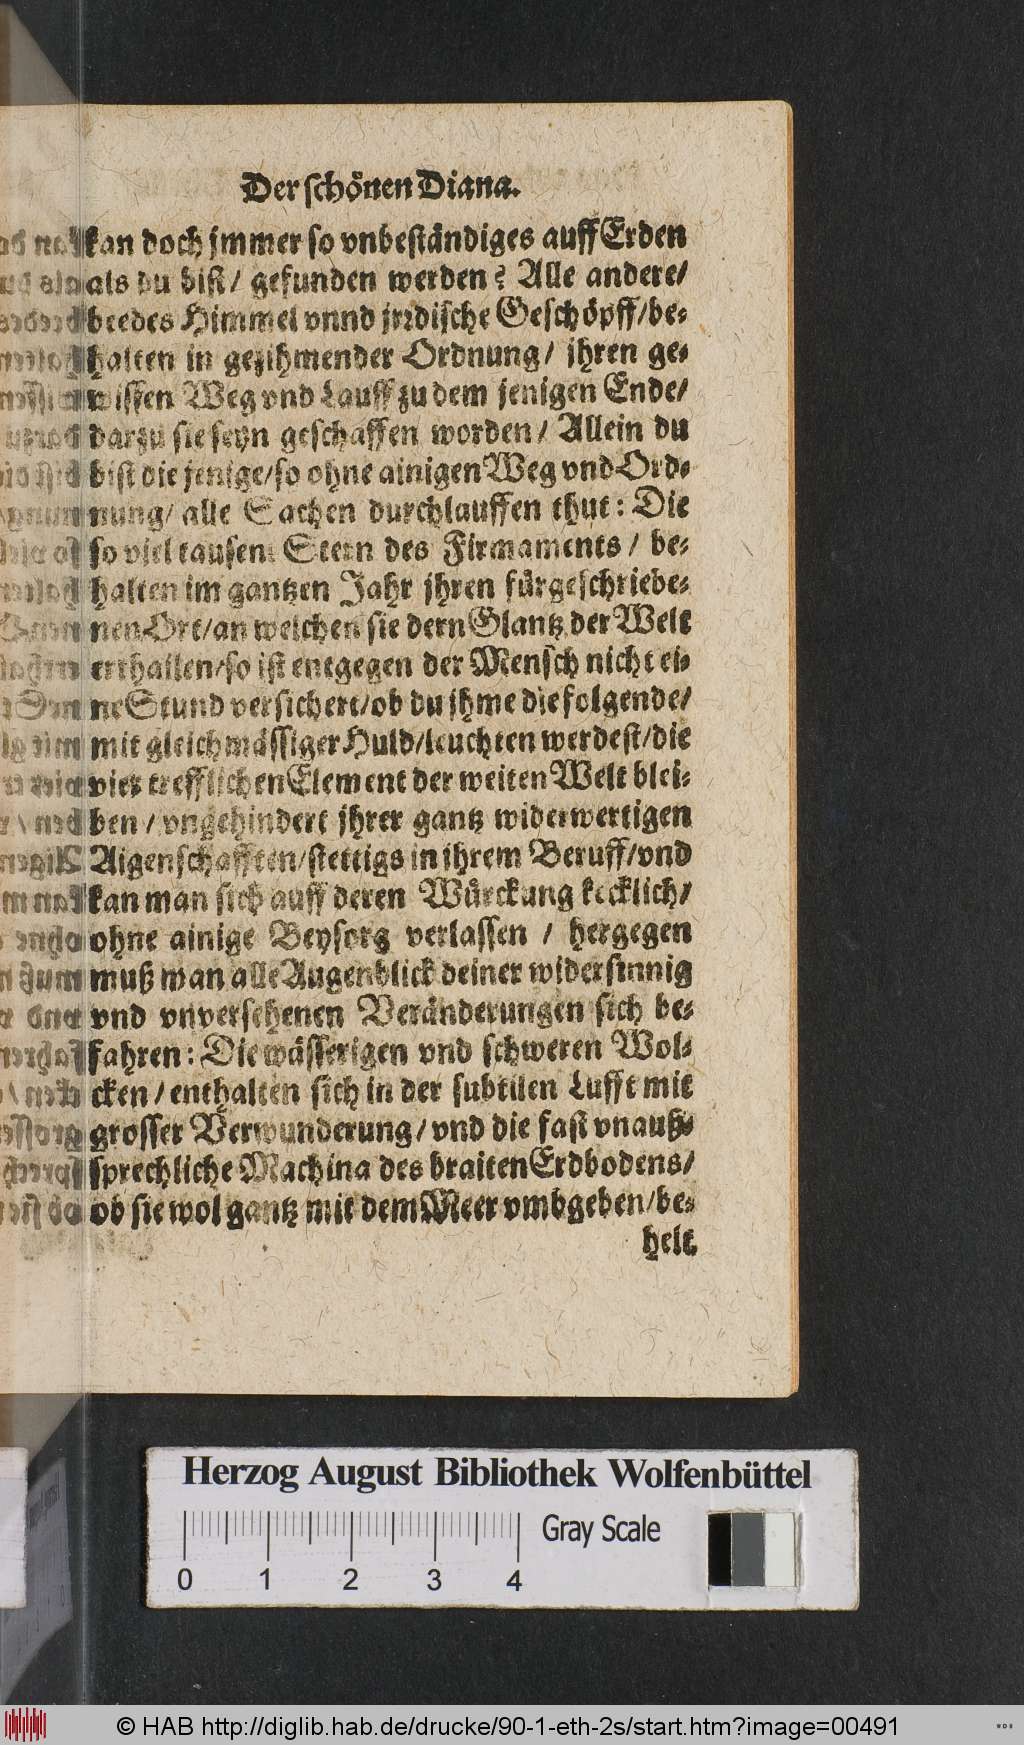 Der schönen Diana.
kan doch jmmer so vnbeständiges auff Erden
als du bist / gefunden werden? Alle andere/
beedes Himmel vnnd jrrdische Geschöpff/be-
halten in gezihmender Ordnung/ jhren ge-
wissen Weg vnd Lauff zu dem jenigen Ende/
darzu sie seyn geschaffen worden/ Allein du
bist die jenige/so ohne ainigen Weg vnd Ord-
nung/ alle Sachen durchlauffen thut: Die
so viel tausent Stern des Firmaments / be-
halten im gantzen Jahr jhren fürgeschriebe-
nen Ort/an welchen sie dern Glantz der Welt
ertthailen/so ist entgegen der Mensch nicht ei-
ne Stund versichert/ob du jhme die folgende/
mit gleichmässiger Huld/leuchten werdest/die
vier trefflichen Element der weiten Welt blei-
ben / vngehindert jhrer gantz widerwertigen
Aigenschafften/stettigs in jhrem Beruff/vnd
kan man sich auff deren Würckung kecklich/
ohne ainige Beysorg verlassen / hergegen
muß man alle Augenblick deiner widersinnig
vnd vnversehenen Veränderungen sich be-
fahren: Die wässerigen vnd schweren Wol-
cken / enthalten sich in der subtilen Lufft mit
grosser Verwunderung/ vnd die fast vnauß-
sprechliche Machina des braiten Erdbodens/
ob sie wol gantz mit dem Meer vmbgeben/be-
helt
Herzog August Bibliothek Wolfenbüttel
Gray Scale
0 1 2 3 4
© HAB http://diglib.hab.de/drucke/90-1-eth-2s/start.htm?image=00491